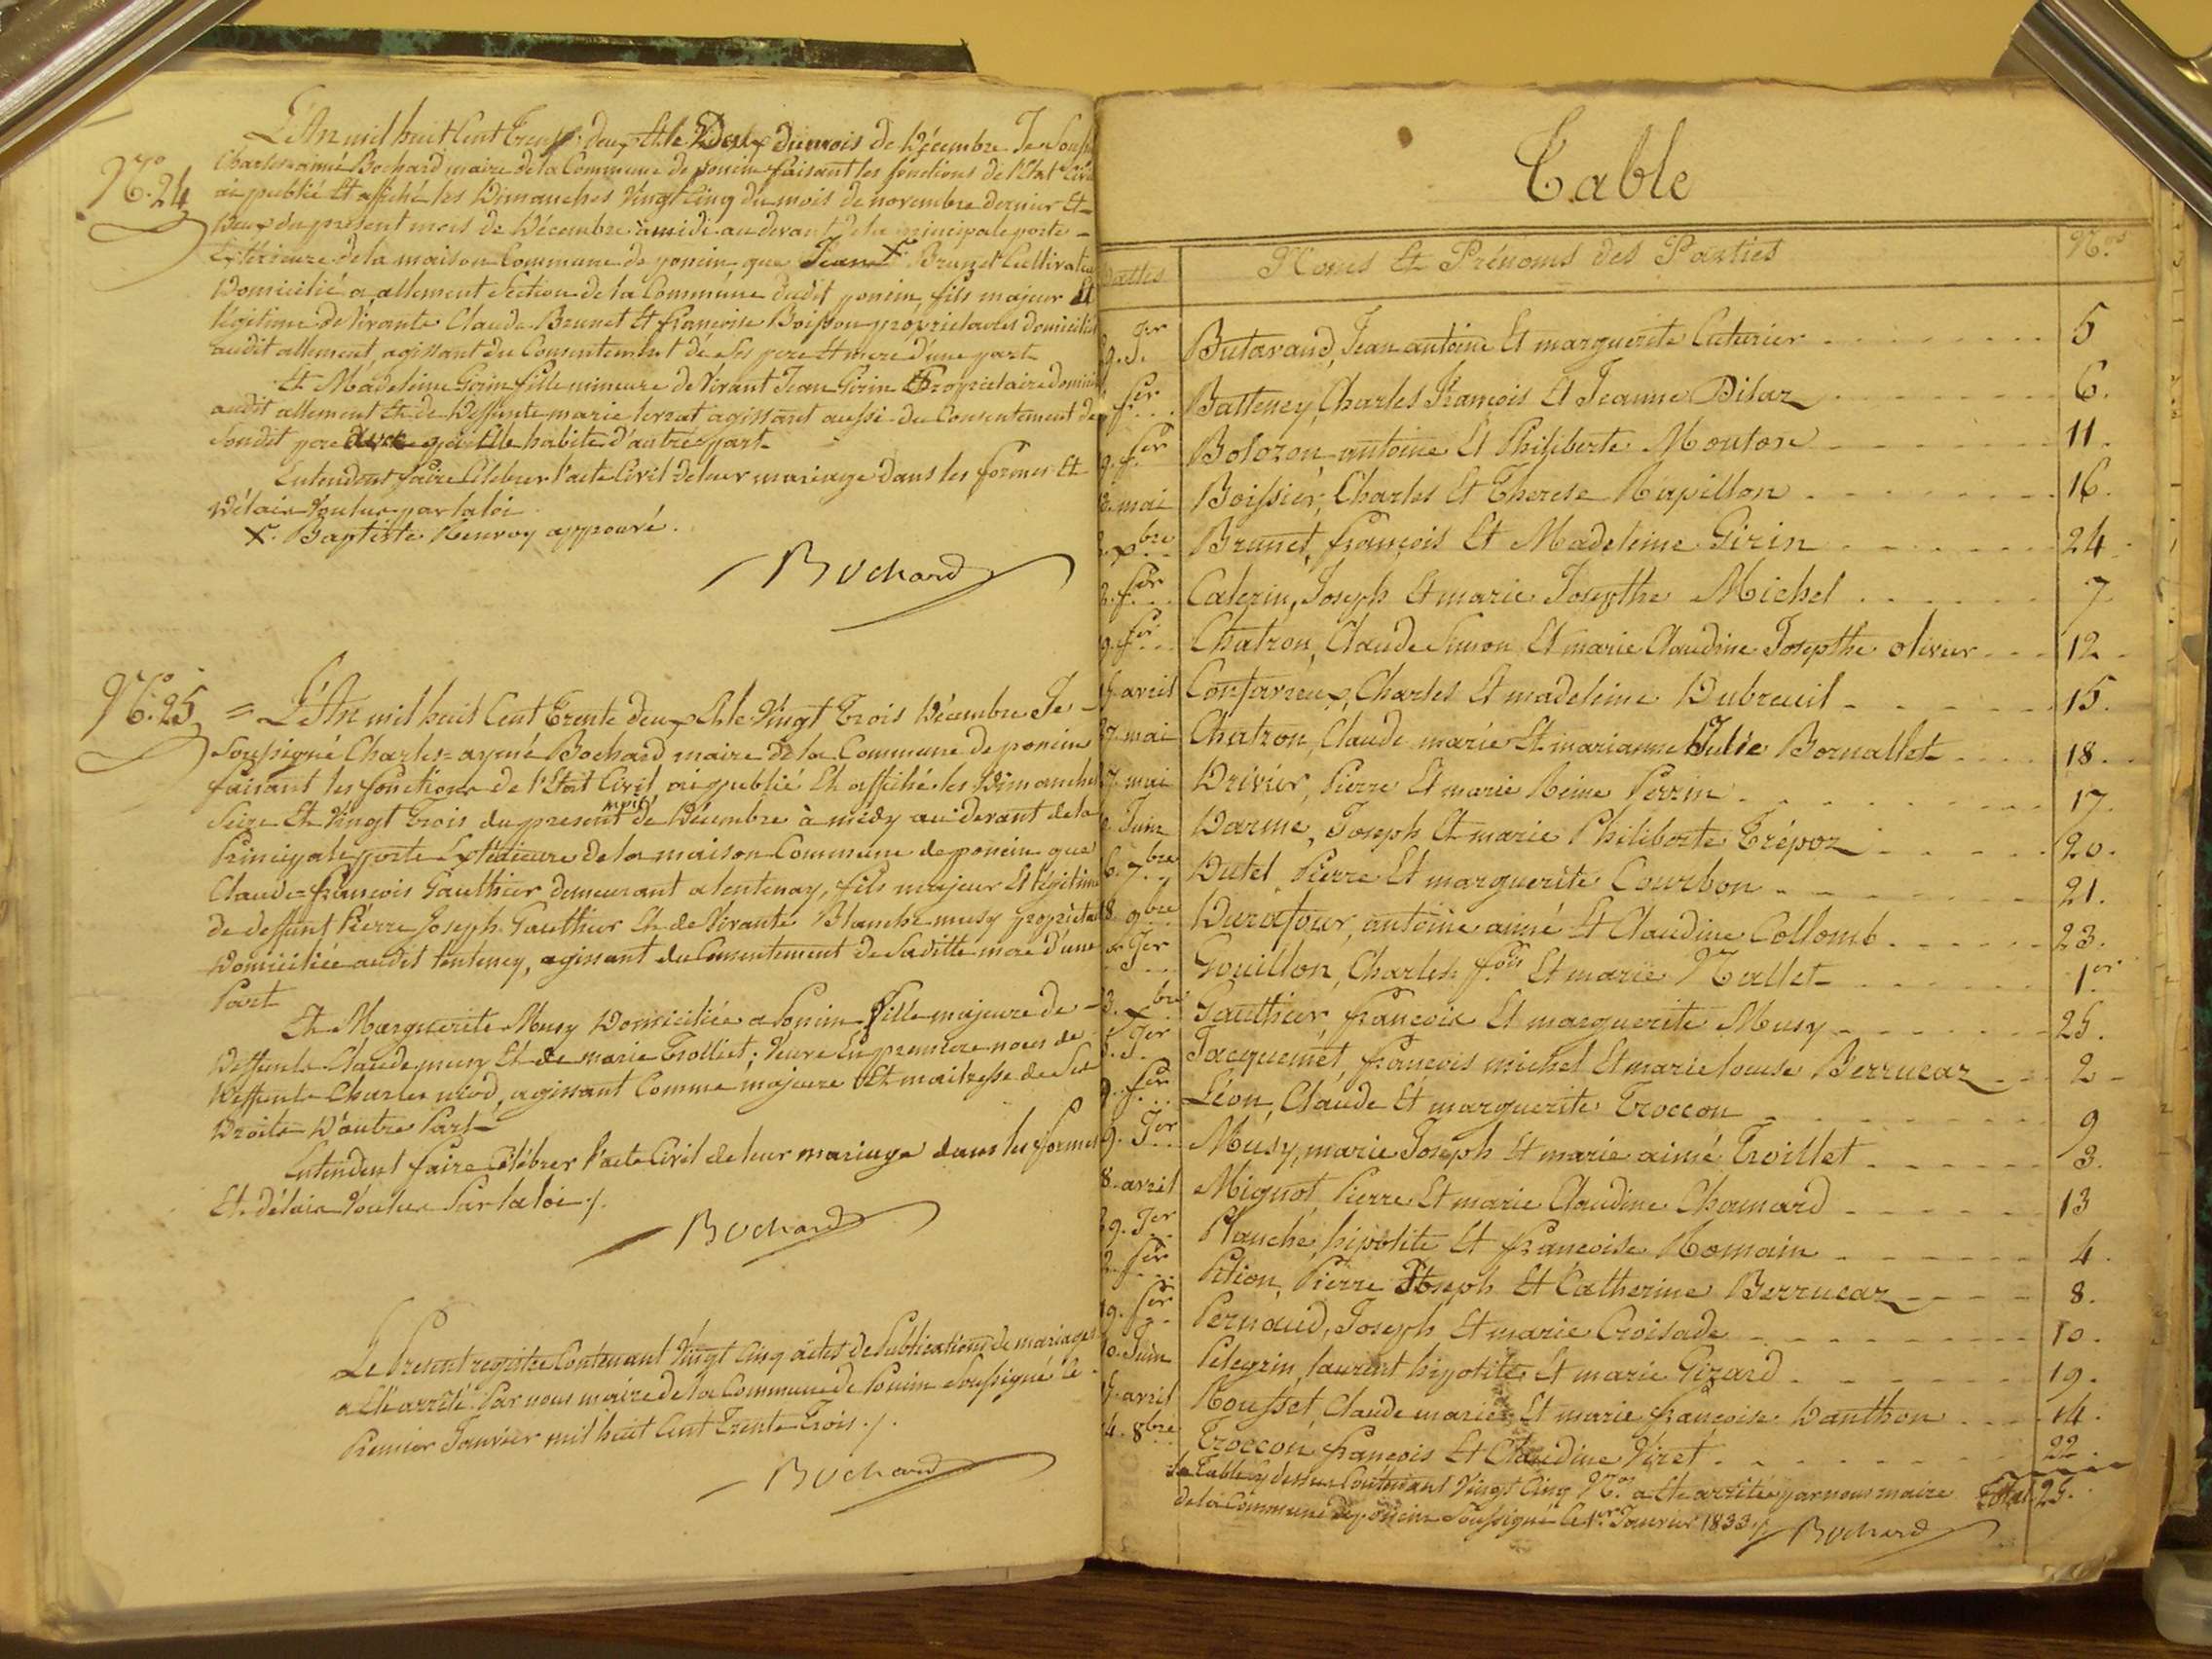 N.o 24
L'An mil huit Cent Trente deux Et le Deux du mois de Décembre Je Soussi
Charles aimé Bochard maire de la Commune de poncin faisant les fonctions de l'Etat Civil
ai publié Et affiché les Dimanches Vingt Cinq du mois de novembre dernier Et
Deux du présent mois de Décembre à midi au devant de la principale porte
Extérieure de la maison Commune de poncin, que Jean X Brunet Cultivateur
Domicilié a allement Section de la Commune dudit poncin, fils majeur Et
légitime de Vivants Claude Brunet Et françoise Boisson propriétaires domiciliés
audit allement, agissant du Consentement de Ses pere Et mere d'une part
Et Madeleine Girin fille mineure de Vivant Jean Girin Propriétaire domicilié
audit allement Et de Deffunte marie agissant aussi du Consentement de
Sondit pere avec qui Elle habite d'autre part
Entendent faire Célébrer l'acte Civil de leur mariage dans les formes Et
Délais Voulus par la loi.
X. Baptiste Renvoy approuvé.
Bochard
N.o 25
= L'An mil huit Cent Trente deux Et le Vingt Trois Décembre Je
Soussigné Charles = aymé Bochard maire de la Commune de poncin
faisant les fonctions de l'Etat Civil, ai publié Et affiché les Dimanches
Seize Et Vingt Trois du présent mois de Décembre à midy au devant de la
Principale porte Extérieure de la maison Commune de poncin que
Claude = françois Gauthier demeurant a lentenay, fils majeur Et légitime
de deffunt Pierre Joseph Gauthier Et de Vivante Blanche musy propriétaire
Domiciliée audit lenteney, agissant du Consentement de Saditte mere d'une
Part
Et Marguerite Musy Domiciliée a Poncin fille majeure de
Deffunts Claude musy Et de marie Trolliet; Veuve En première noces de
Deffunt Charles niod, agissant Comme majeure Et maitresse de Ses
Droits D'autre Part
Entendent faire Célébrer l'acte Civil de leur mariage dans les formes
Et délais Voulus Par la loi ./.
Bochard
Le Présent registre Contenant Vingt Cinq actes de Publications de mariages
a Eté arrêté Par nous maire de la Commune de Poncin Soussigné le
Premier Janvier mil huit Cent Trente Trois ./.
Bochard
Table
Dattes Noms Et Prénoms des Parties N.os
29. Jer Butavand, Jean antoine Et marguerite Cuturier 5
fer Batteney, Charles François Et Jeanne Pilaz 6.
9. fer Bolozon, antoine Et Philiberte Mouton 11.
mai Boissier, Charles Et Therese Rapillon 16.
2. Xbre Brunet, françois Et Madeleine Girin 24
2. fer Calezin, Joseph Et marie Josepthe Michel 7
9. fer Chatron, Claude Simon Et marie Claudine Josepthe olivier 12
15 avril Confavreux, Charles Et madeleine Dubreuil 15.
27. mai Chatron, Claude marie Et marianne Julie Bornallet 18.
7. mai Drivier, Pierre Et marie Reine Perrin 17.
Juin Darme, Joseph Et marie Philiberte Trépoz 20.
16. 7bre Dutel Pierre Et marguerite Courbon 21.
18. 9bre Durafour, antoine aimé Et Claudine Collomb 23.
Jer Gouillon, Charles fois Et marie Mallet 1.er
23. Xbre Gauthier, françois Et marguerite Musy 25.
Jer Jacquemet, françois michel Et marie louise Berrucaz 2
9. fer Léon, Claude Et marguerite Troccon 9
9. Jer Musy, marie Joseph Et marie aimé Troillet 3.
8 avril Mignot, Pierre Et marie Claudine Chamard 13
29. Jer Planche, hipolite Et françoise Romain 4.
2. fer Pition, Pierre Joseph Et Catherine Berrucaz 8.
19. fer Pernaud, Joseph Et marie Croisade 10.
10. Juin Pelegrin, laurent hipolite Et marie Girard 19.
15 avril Rousset, Claude marie Et marie françoise Danthon 14.
14. 8bre Troccon françois Et Claudine Viret 22.
La Table cy dessus Contenant Vingt Cinq N.os a Eté arrêtée par nous maire Total 25.
de la Commune de poncin Soussigné le 1.er Janvier 1833 ./. Bochard